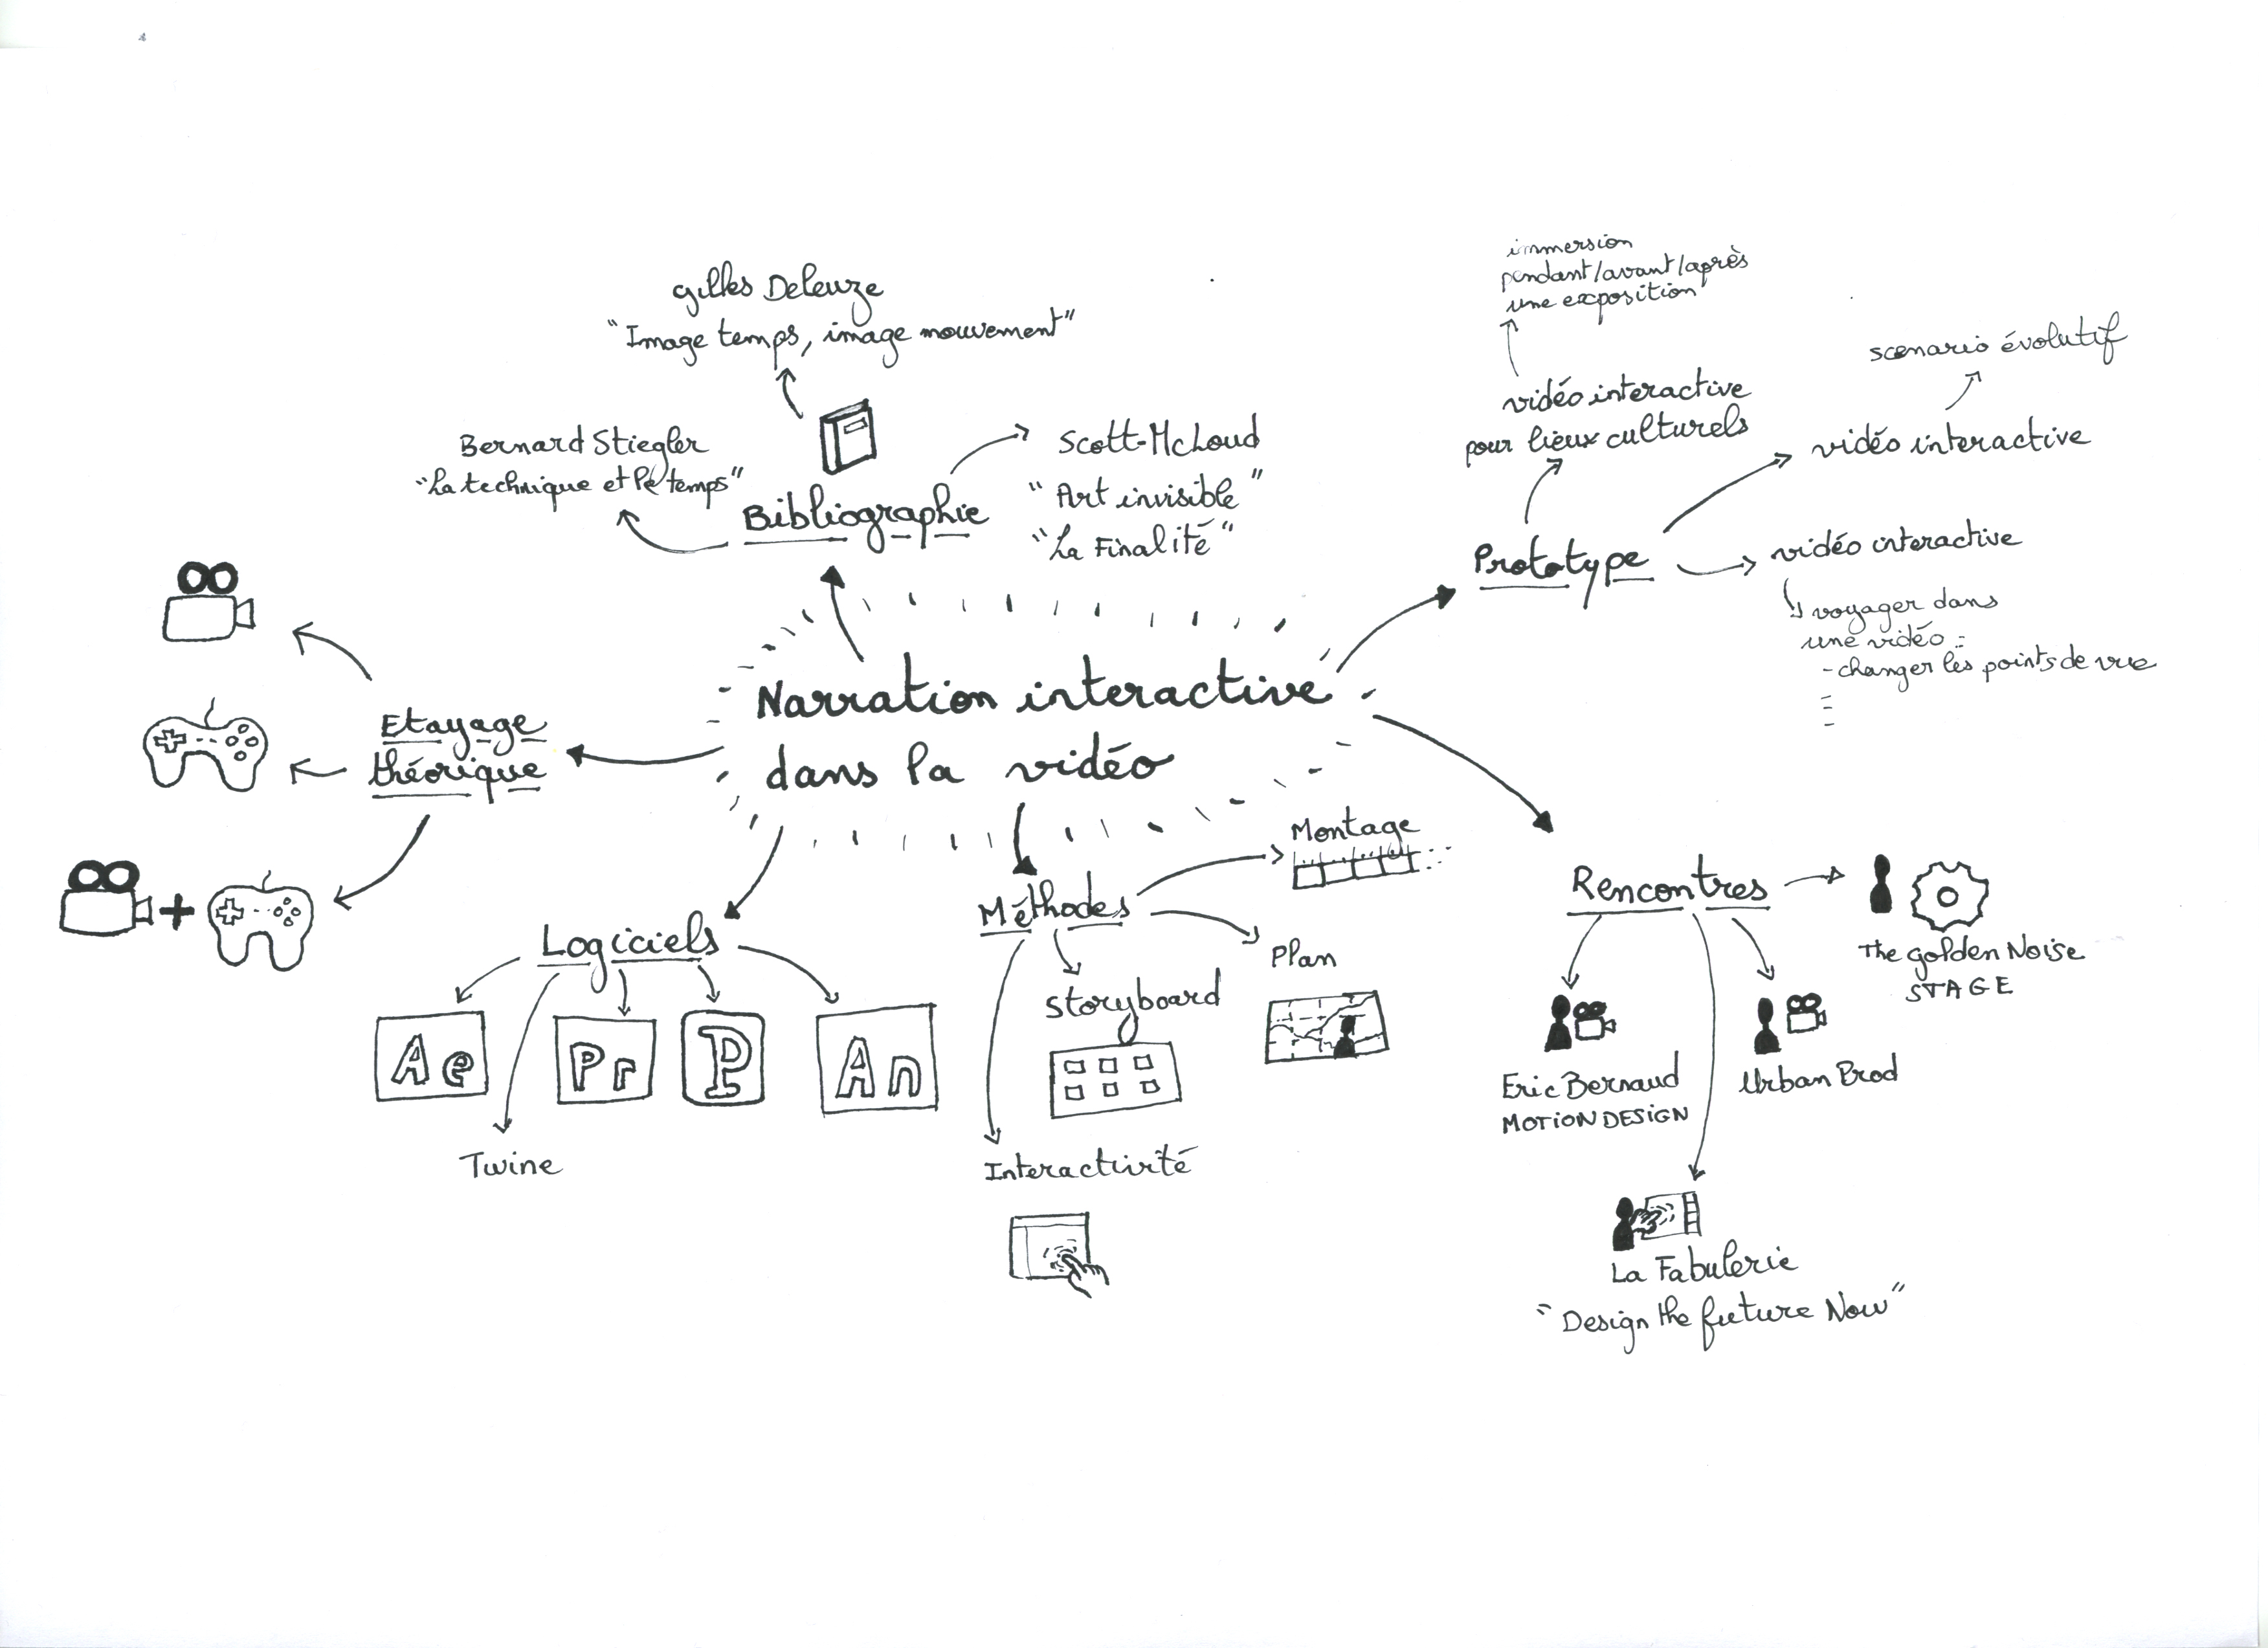 Narration interactive
dans la vidéo
Bibliographie
Gilles Deleuze
"Image temps, image mouvement"
Bernard Stiegler
"La technique et le temps"
Scott-McLoud
"Art invisible"
"La Finalité"
Prototype
vidéo interactive
pour lieux culturels
immersion
pendant/avant/après
une exposition
vidéo interactive
scenario évolutif
vidéo interactive
voyager dans
une vidéo :
- changer les points de vue
-
-
-
Etayage
théorique
+
Logiciels
Ae
Pr
P
An
Twine
Méthodes
Montage
Plan
Storyboard
Interactivité
Rencontres
The Golden Noise
STAGE
Eric Bernaud
MOTION DESIGN
Urban Prod
La Fabulerie
"Design the future Now"